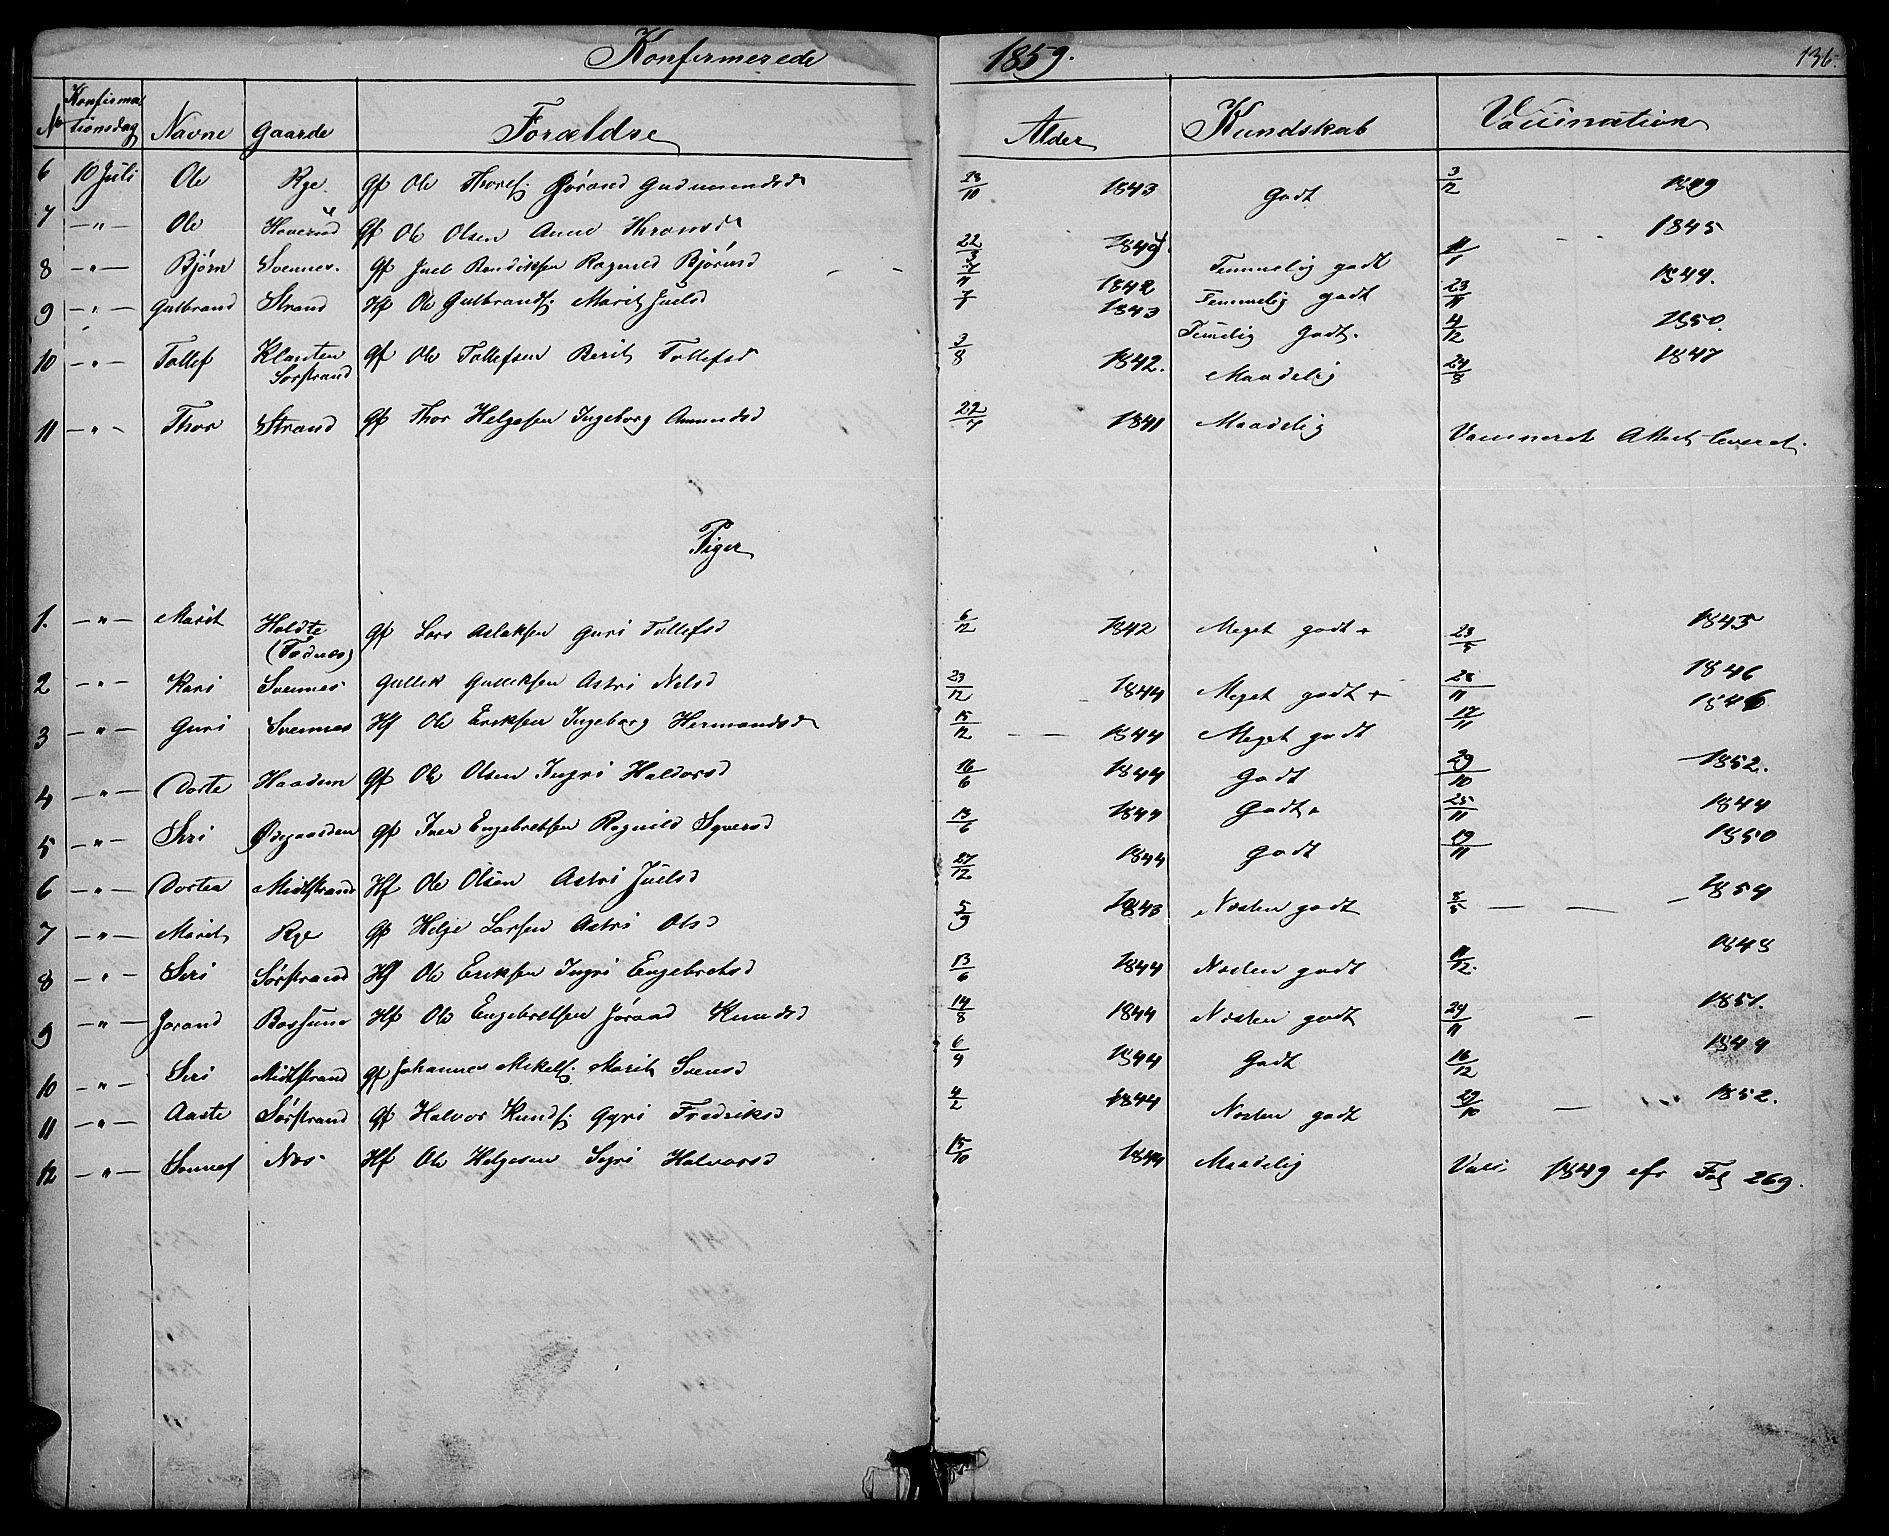 Konfirmerede 1859. 136.
No Konfirma tionsdag Navne Gaarde Forældre Alder Kundskab Vaccination
6 10 Juli Ole Rye. Gf Ole Thoresf Jörand Gudmundsd 23/10 1843 Godt 3/12 1849
7 -"- Ole Haverud Gf Ole Olsen Anne Thronsd 22/3 1844. Temmelig godt 11/1 1845
8 -"- Björn Svennes. Gf Juel Bendiksen Ragnild Björnsd 1842 Temmelig godt 23/11 1844.
9 -"- Gulbrand Strand Hf Ole Gulbrandsf Marit Juelsd 1843 Temelig Godt. 4/12 1850.
10 -"- Tollef Klanten Sørstrand Gf Ole Tollefsen Berit Tollefsd 3/8 1842. Maadelig 24/8 1847
11 -"- Thor Strand Gf Thor Helgesen Ingeborg Amundsd 22/7 1841 Maadelig Vaccineret Attest leveret.
Piger
1. -"- Marit Holdte (Fodnæs) Gf Lars Aslaksen Guri Tollefsd 6/12 1842 Meget godt + 23/5 1845
2 -"- Kari Svennes Gullik Gulliksen Astri Nilsd 23/12 1844 Meget godt + 28/11 1846
3 -"- Guri Svennes Hf Ole Eriksen Ingeborg Hermandsd 15/12 1844 Meget godt 17/11 1846
4 -"- Dorte Haadem Gf Ole Olsen Ingri Haldorsd 16/6 1844 Godt 29/10 1852.
5 -"- Siri Ødegaarden Gf Iver Engebretsen Ragnild Syversd 13/6 1844 Godt + 25/11 1844
6 -"- Dortea Midtstrand Hf Ole Olsen Astri Juelsd 27/12 1844 Godt 19/11 1850
7 -"- Marit Rye Gf Helge Larsen Astri Olsd 5/9 1843 Næsten godt 8/5 1854
8 -"- Siri Sørstrand Hf Ole Eriksen Ingri Engebretsd 13/6 1844 Næsten godt 11/12. 1848
9 -"- Jorand Hf Ole Engebretsen Jörand Knudsd 14/8 1844 Næsten godt 24/11 1851.
10 -"- Siri Midtstrand Gf Johannes Mikelsf Marit Svensd 6/9 1844 Godt 16/12 1844
11 -"- Aaste Sørstrand Gf Halvor Knudsf Gyri Fredriksd 4/2 1844 Næsten godt 29/10 1852.
12 -"- Sonnef Næs Hf Ole Helgesen Sigri Halvorsd 15/10 1844 Maadelig Vacc. 1849 efr Fol 269.